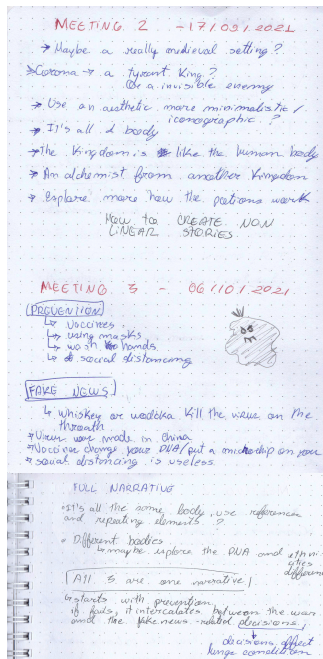 MEETING 2 - 17/09/2021
→ Maybe a really medieval setting?
→ Corona → a tyrant King?
Or a invisible enemy
→ Use an aesthetic more minimalistic /
iconographic?
→ It's all d body
→ The Kingdom is like the human body
→ An alchemist from another Kingdom
→ Explore more how the potions work
How to CREATE NON
LINEAR STORIES
MEETING 3 - 06/10/2021
PREVENTION
↳ vaccines,
↳ using masks
↳ wash hands
↳ social distancing
FAKE NEWS
↳ whiskey or wodcka kill the virus on the
throath
* Virus was made in China
* Vaccine change your DNA/put a microchip on your
* social distancing is useless
FULL NARRATIVE
• It's all the same body, use references
and repeating elements?
• Different bodies
↳ maybe explore the DNA and ethni
cities
different
All 3 are one narrative
↳ starts with prevention,
if fails, it intercalates between the war
and the fake news-related decisions,
↓
decisions affect
lungs condition